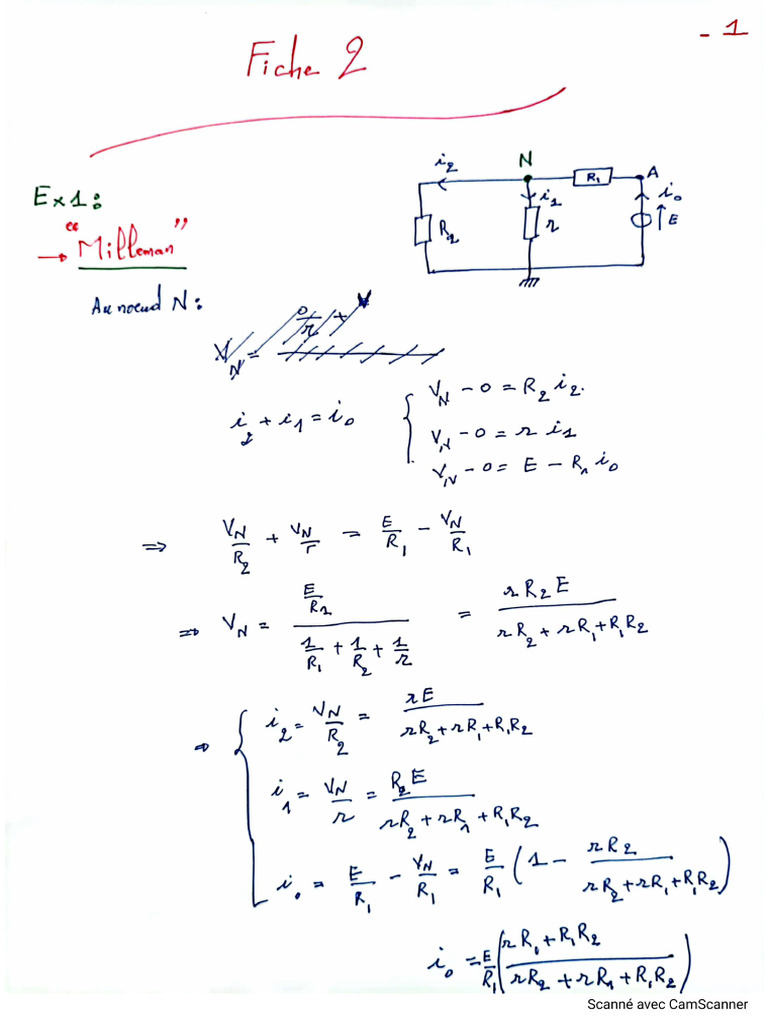 - 1
Fiche 2
Ex1:
→ "Milleman"
i₂ N R₁ A
i₁ i₀
R₂ r E
Au noeud N:
V_N =
i₂ + i₁ = i₀
V_N - 0 = R₂ i₂.
V_N - 0 = r i₁
V_N - 0 = E - R₁ i₀
⇒ V_N/R₂ + V_N/r = E/R₁ - V_N/R₁
⇒ V_N = (E/R₁)/(1/R₁ + 1/R₂ + 1/r) = r R₂ E/(rR₂ + rR₁ + R₁R₂)
⇒ i₂ = V_N/R₂ = rE/(rR₂ + rR₁ + R₁R₂)
i₁ = V_N/r = R₂E/(rR₂ + rR₁ + R₁R₂)
i₀ = E/R₁ - V_N/R₁ = E/R₁ (1 - rR₂/(rR₂ + rR₁ + R₁R₂))
i₀ = E/R₁ (rR₁ + R₁R₂/(rR₂ + rR₁ + R₁R₂))
Scanné avec CamScanner